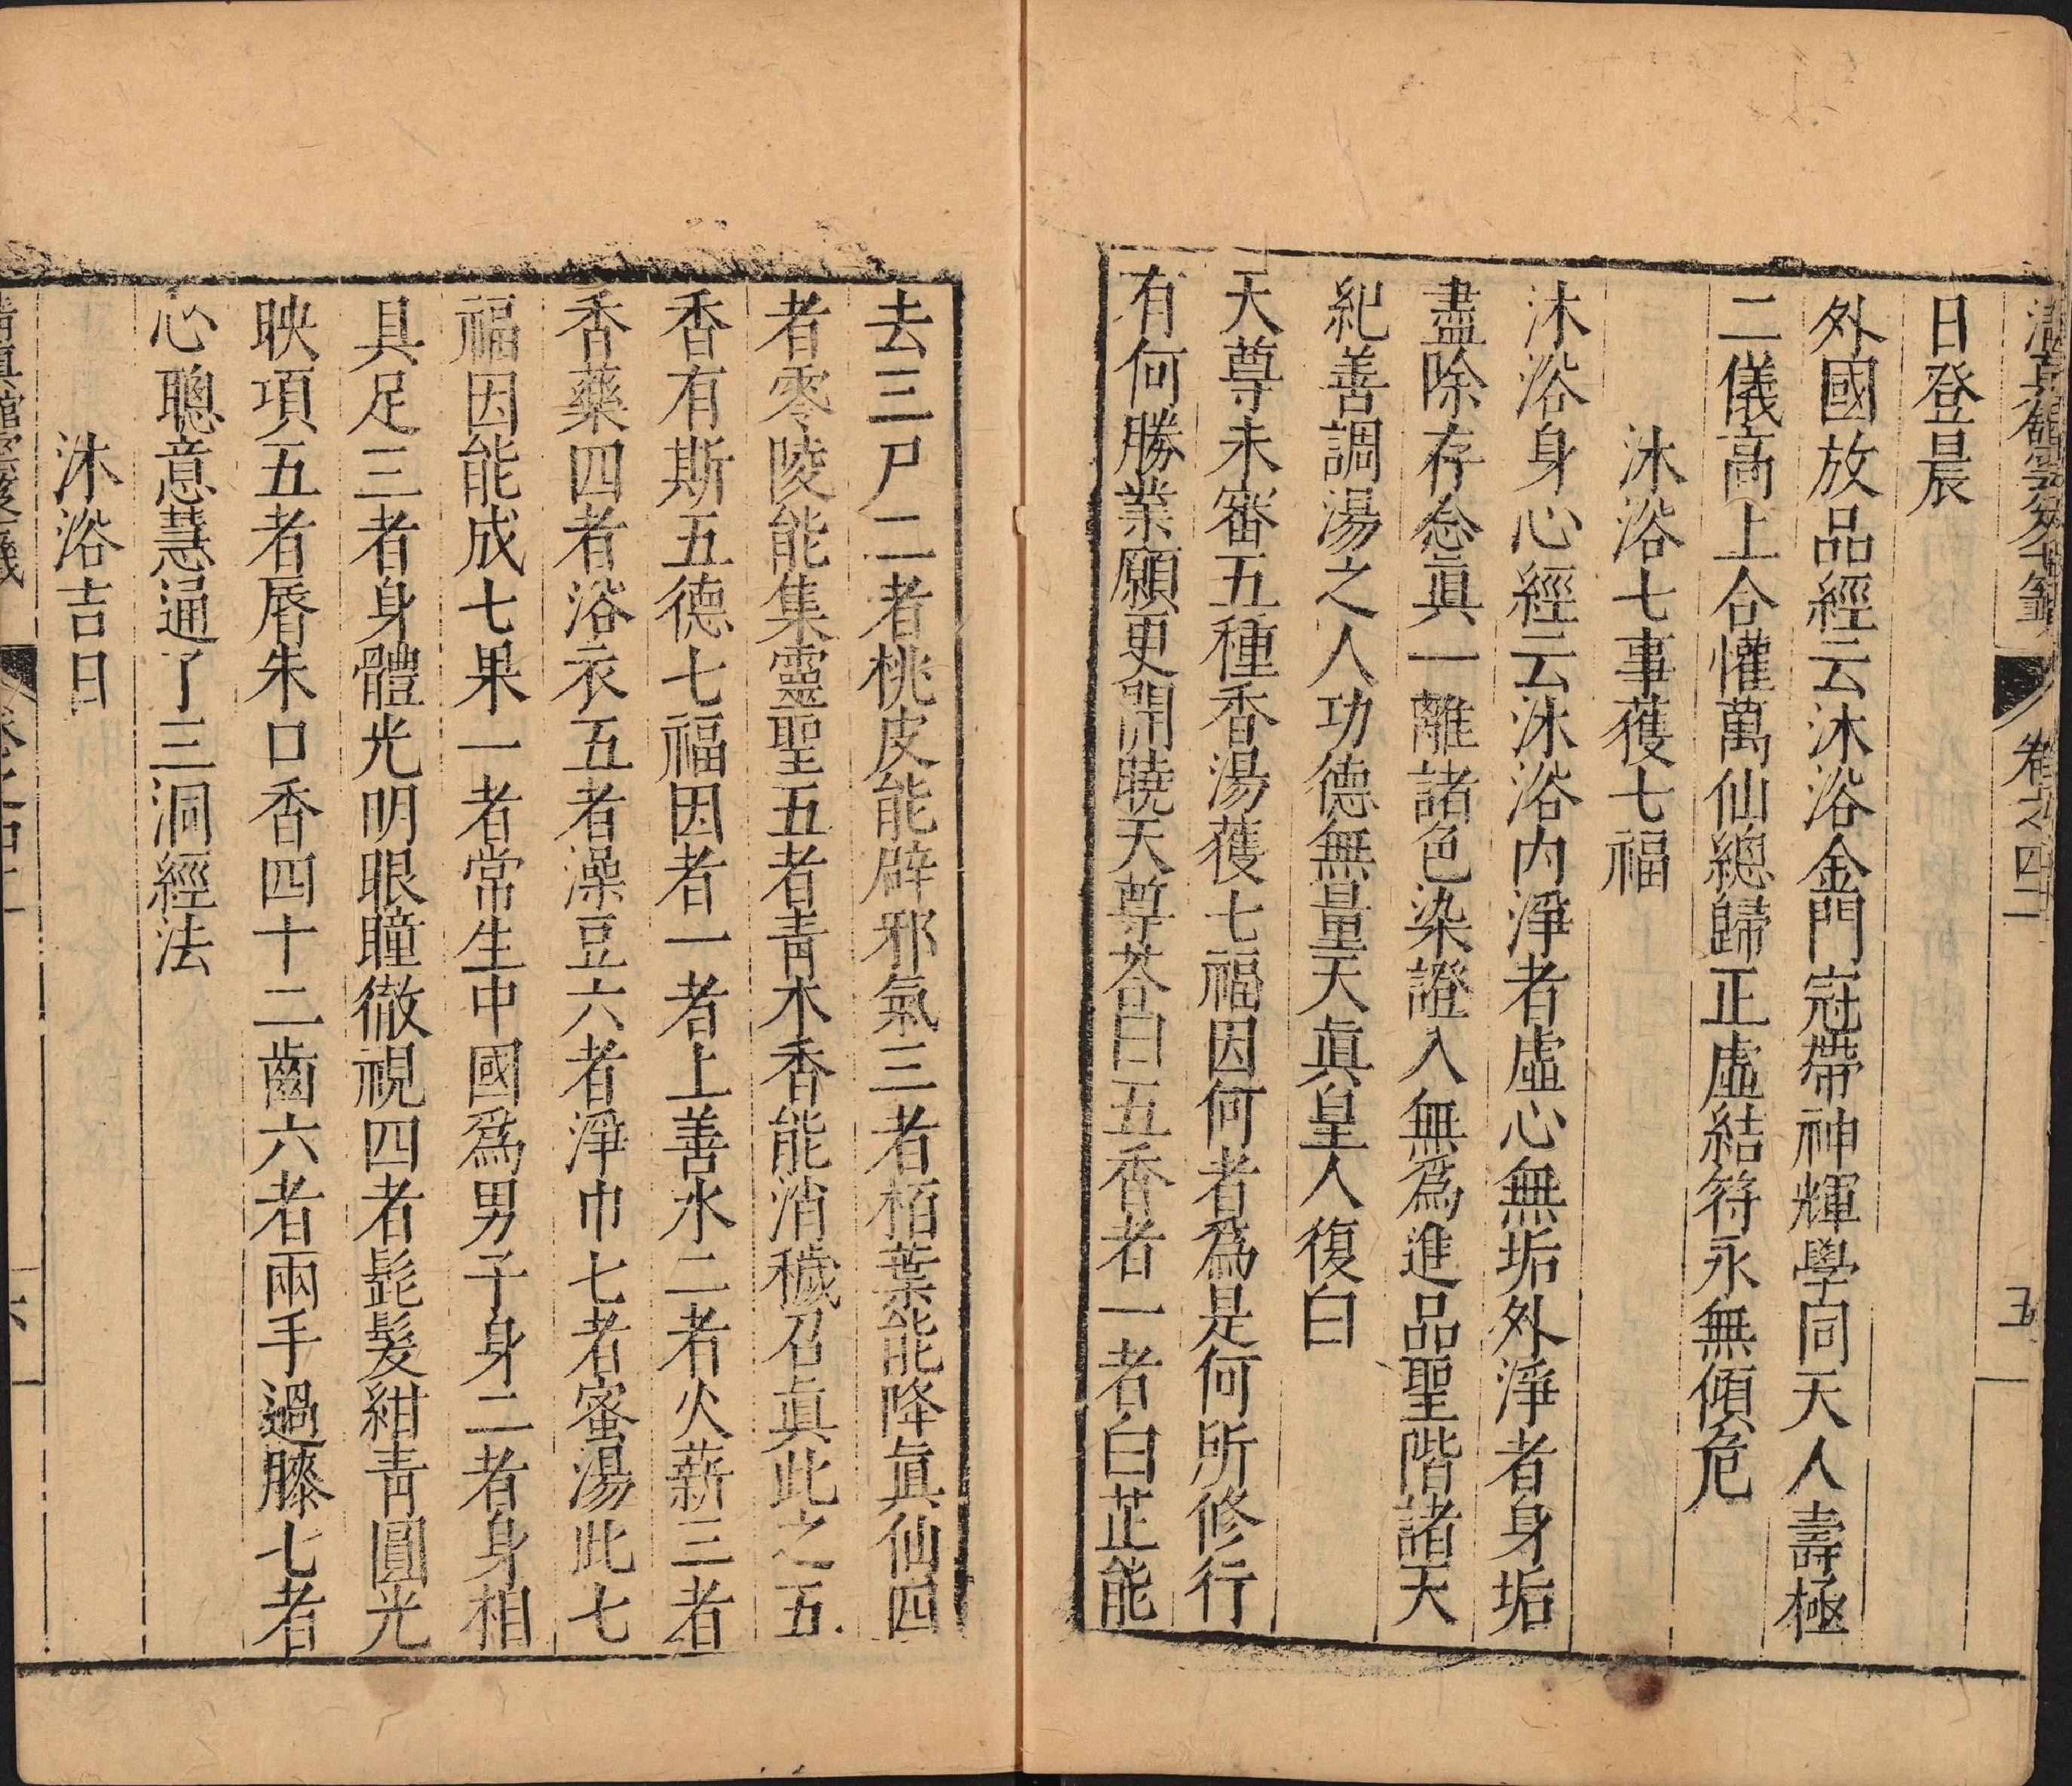 清真館雲笈七籤 卷之四十一 五
日登晨
外國放品經云沐浴金門冠帶神輝學同天人壽極
二儀高上合懽萬仙總歸正虛結符永無傾危
沐浴七事獲七福
沐浴身心經云沐浴内淨者虛心無垢外淨者身垢
盡除存念眞一離諸色染證入無爲進品聖階諸天
紀善調湯之人功德無量天眞皇人復白
天尊未審五種香湯獲七福因何者爲是何所修行
有何勝業願更開曉天尊荅曰五香者一者白芷能
去三尸二者桃皮能辟邪氣三者栢葉能降眞仙四
者零陵能集靈聖五者青木香能消穢召眞此之五
香有斯五德七福因者一者上善水二者火薪三者
香藥四者浴衣五者澡豆六者淨巾七者蜜湯此七
福因能成七果一者常生中國爲男子身二者身相
具足三者身體光明眼瞳徹視四者髭髮紺青圓光
映項五者脣朱口香四十二齒六者兩手過膝七者
心聰意慧通了三洞經法
沐浴吉日